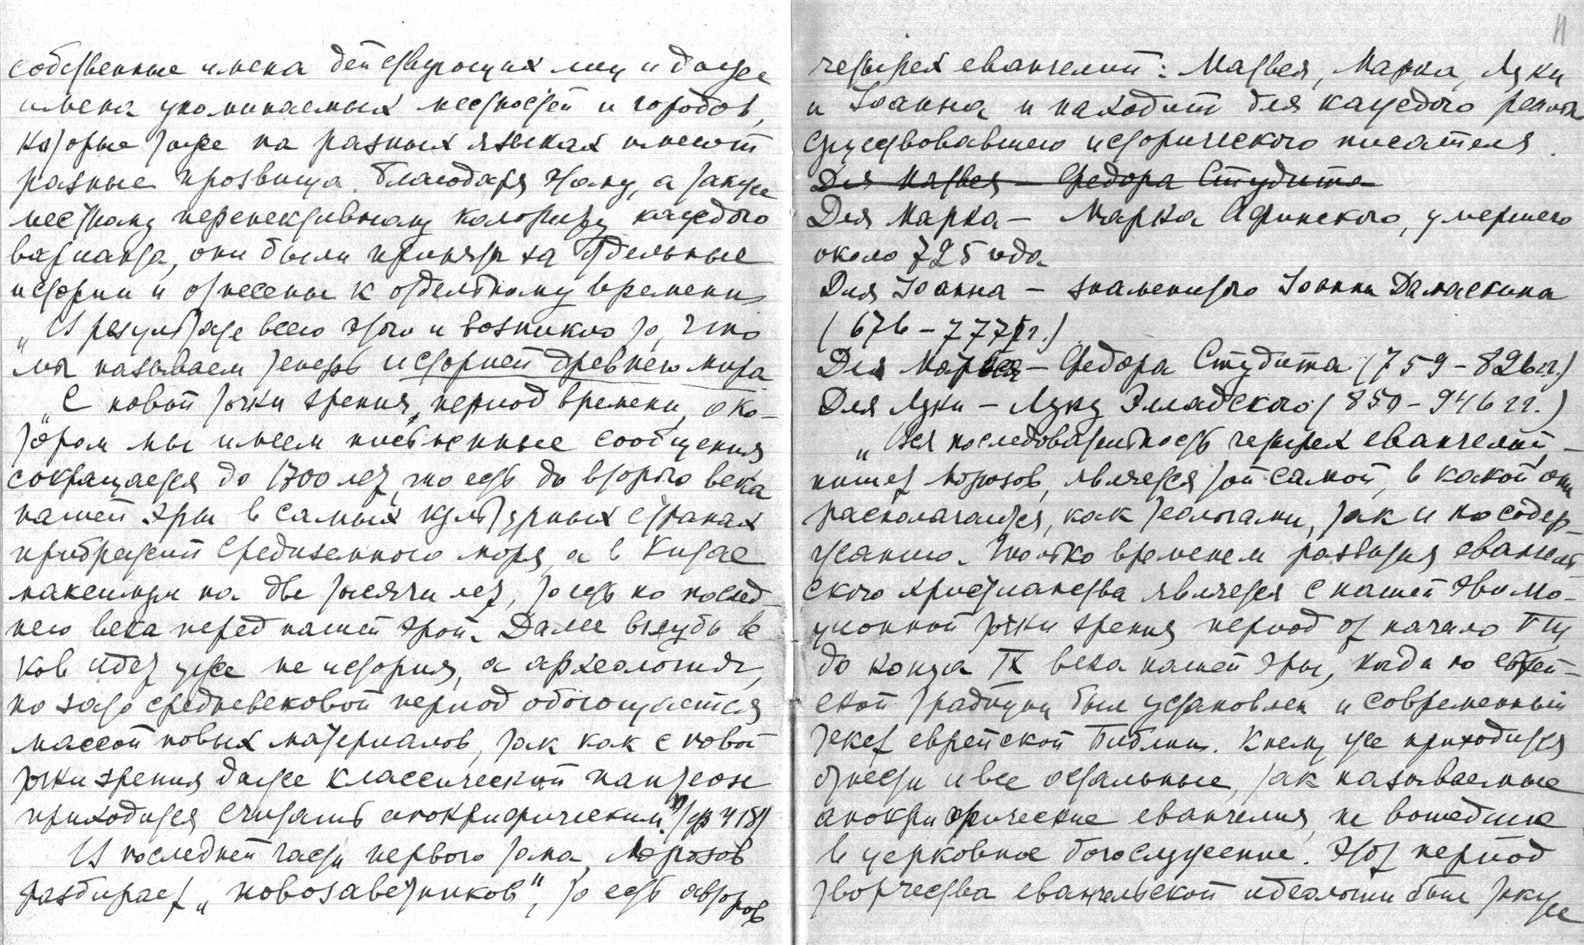 собственные имена действующих лиц и даже
имена упоминаемых местностей и городов,
которые тоже на разных языках имеют
разные прозвища. Благодаря этому, а также
местному перспективному колориту каждого
варианта, они были приняты за отдельные
истории и отнесены к отдельному времени
„В результате всего этого и возникло то, что
мы называем теперь историей древнего мира
„С новой точки зрения, период времени, о ко-
тором мы имеем письменные сообщения
сокращается до 1700 лет, то есть до второго века
нашей эры в самых культурных странах
прибрежий Средиземного моря, а в Китае
максимум на две тысячи лет, то есть по послед
него века перед нашей эрой. Далее вглубь ве
ков идет уже не история, а археология,
но зато средневековой период обогощается
массой новых материалов, так как с новой
точки зрения даже классический пантеон
приходится считать апокрифическим." (стр 418)
В последней части первого тома, Морозов
разбирает „новозаветников", то есть авторов
11
четырех евангелий: Матвея, Марка, Луки
и Иоанна и находит для каждого реально
существовавшего исторического писателя.
Для Матвея – Федора Студита
Для Марка – Марка Афинского, умершего
около 725 года
Для Иоанна – знаменитого Иоанна Дамаскина
(676 – 777 г.)
Для Матвея – Федора Студита (759 – 826 гг.)
Для Луки – Луку Элладского (850 – 946 гг.)
„Вся последовательность четырех евангелий, –
пишет Морозов, является той самой, в какой они
располагаются, как теологами, так и по содер-
жанию. Только временем развития евангель
ского христианства является с нашей эволю-
ционной точки зрения период от начала VIII
до конца IX века нашей эры, когда по еврей-
ской традиции был установлен и современный
текст еврейской Библии. К нему же приходится
отнести и все остальные, так называемые
апокрифические евангелия, не вошедшие
в церковное богослужение. Этот период
творчества евангельской идеологии был также